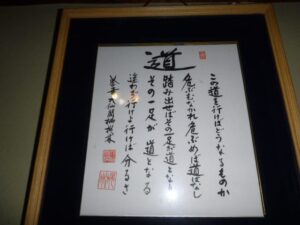 道
この道を行けばどうなるものか
危ぶむなかれ危ぶめば道はなし
踏み出せばその一足が道となり
その一足が道となる
迷わず行けよ行けば分るさ